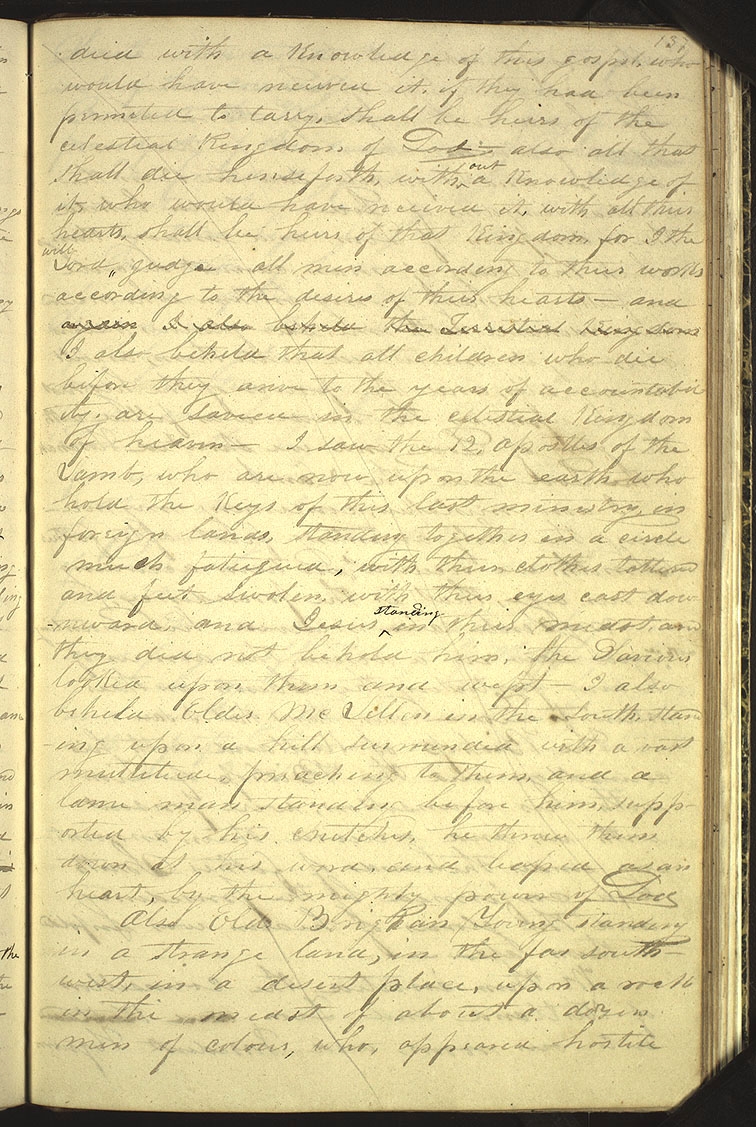 137
died with a Knowledge of this gospel, who
would have received it, if they had been
permited to tarry, shall be heirs of the
celestial Kingdom of God— also all that
shall die henseforth, with^out a Knowledge of
it, who would have received it, with all their
hearts, shall be heirs of that Kingdom, for I the
Lord ^will gudge all men according to their works
according to the desires of their hearts— and
again I also beheld the Terestial Kingdom
I also beheld that all children who die
before they arive to the years of accountabil
ity, are saved in the celestial Kingdom
of heaven— I saw the 12, apostles of the
Lamb, who are now upon the earth who
hold the Keys of this last ministry, in
foreign lands, standing together in a circle
much fatiegued, with their clothes tattered
and feet swolen, with their eyes cast down
-nward, and Jesus ^standing in their midst, and
they did not behold him, the Saviour
looked upon them and wept— I also
beheld Elder McLellen in the south, stand
-ing upon a hill surrounded with a vast
multitude, preaching to them, and a
lame man standing before him, supp-
orted by his crutches, he threw them
down at his word, and leaped as an
heart, by the mighty power of God
Also Eldr Brigham Young standing
in a strange land, in the far south-
west, in a desert place, upon a rock
in the midst of about a dozen
men of colour, who, appeared hostile
the